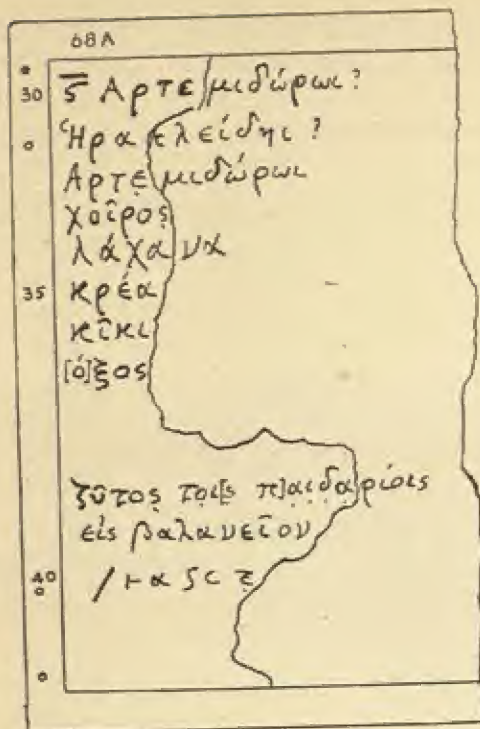 68A
30 ϛ̅ Αρτεμιδώρωι?
Ἡρακλείδηι?
Αρτε̣μιδώρωι
χοῖρος̣
λάχανα
35 κρέα
κῖκι
[ό]ξος
ζῦτος̣ το̣ι[ς π]α̣ι̣δα̣ρίοις
εἰς βαλανεῖον
40 / ⊢ α ϛ c